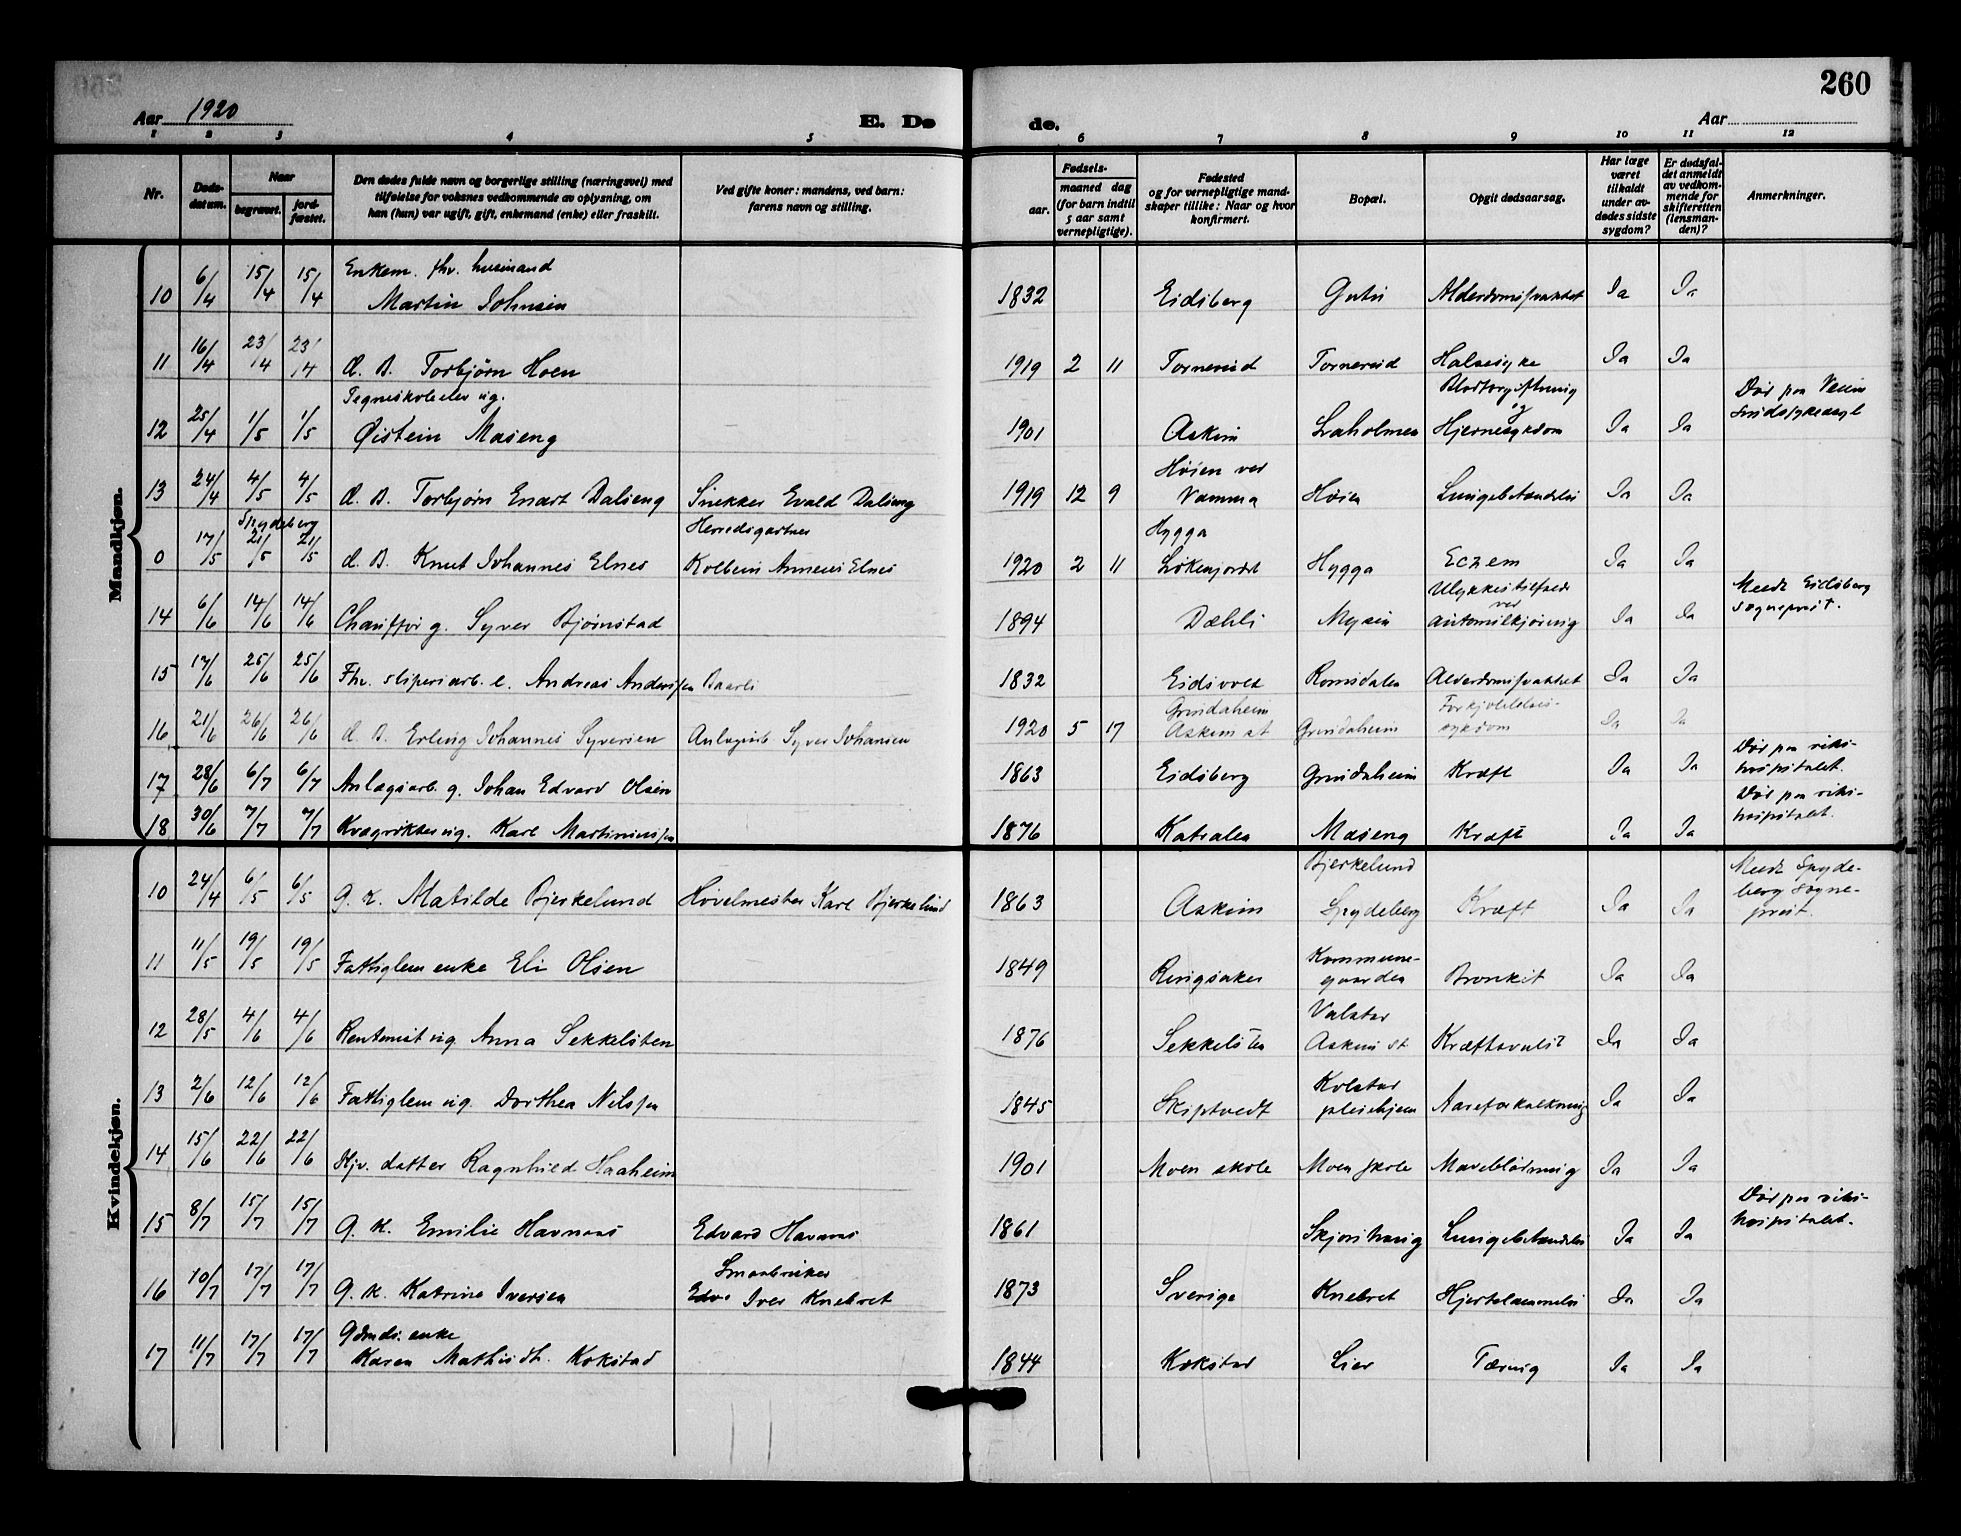 260
Aar 1920
E. Dø
de.
Aar
1 2 3 4 5 6 7 8 9 10 11 12
Nr.
Døds-
datum.
Naar
begravet.
jord-
fæstet.
Den dødes fulde navn og borgerlige stilling (næringsvei) med
tilføielse for voksnes vedkommende av oplysning, om
han (hun) var ugift, gift, enkemand (enke) eller fraskilt.
Ved gifte koner: mandens, ved barn:
farens navn og stilling.
Fødsels-
aar.
maaned dag
(for barn indtil
5 aar samt
vernepligtige).
Fødested
og for vernepligtige mand-
skaper tillike: Naar og hvor
konfirmert.
Bopæl.
Opgit dødsaarsag.
Har læge
været
tilkaldt
under av-
dødes sidste
sygdom?
Er dødsfal-
det anmeldt
av vedkom-
mende for
skifteretten
(lensman-
den)?
Anmerkninger.
Mandkjøn.
Enkem. fhv. husmand
10 6/4 15/4 15/4 Martin Johnsen 1832 Eidsberg Alderdomssvakhet Ja Ja
11 16/4 23/4 23/4 d. B. Torbjørn Hoen 1919 2 11 Tornerud Tornerud Halssyke Ja Ja
Tegneskoleelev ug. Blodforgiftning Død paa
og
12 25/4 1/5 1/5 Øistein Maseng 1901 Askim Hjernesykdom Ja Ja
Høien ved
13 24/4 4/5 4/5 d. B. Torbjørn Enart Dalseng Snekker Evald Dalseng 1919 12 9 Vamma Høien Lungebetændelse Ja Ja
Spydeberg Herredsgartner Hygga
0 17/5 21/5 21/5 d. B. Knut Johannes Elnes Kolbein Elnes 1920 2 11 Hygga Eczem Ja Ja
Ulykkestilfælde Meldt Eidsberg
ved sogneprest.
14 6/6 14/6 14/6 Chauffør g. Syver Bjørnstad 1894 Dæhli Mysen automilkjøring Ja Ja
15 17/6 25/6 25/6 Fhv. sliperiarb. e. Andreas Anderssen Baarli 1832 Eidsvold Romsdalen Alderdomssvakhet Ja Ja
Grindaheim Forkjølelses-
16 21/6 26/6 26/6 d. B. Erling Johannes Syversen Anlægsarb. Syver Johansen 1920 5 17 Askim st Grindaheim sykdom Ja Ja
Død paa riks-
17 28/6 6/7 6/7 Anlægsarb. g. Johan Edvard Olsen 1863 Eidsberg Grindaheim Kræft Ja Ja hospitalet.
Død paa riks-
18 30/6 7/7 7/7 Kvægrøkter ug. Karl Martiniussen 1876 Katralen Maseng Kræft Ja Ja hospitalet.
Kvindekjøn.
Bjerkelund Meldt Spyde-
berg sogne-
10 24/4 6/5 6/5 g. k. Matilde Bjerkelund Høvelmester Karl Bjerkelund 1863 Askim Spydeberg Kræft Ja Ja prest.
Kommune-
11 11/5 19/5 19/5 Fattiglem enke Eli Olsen 1849 Ringsaker gaarden Bronkit Ja Ja
12 28/5 4/6 4/6 Rentenist ug. Anna Sekkelsten 1876 Sekkelsten Askim st. Kræftsvulst Ja Ja
Kolstad
13 2/6 12/6 12/6 Fattiglem ug. Dorthea Nilssen 1845 Skiptvedt pleiehjem Aareforkalkning Ja Ja
14 15/6 22/6 22/6 Hjv. datter Ragnhild Haaheim 1901 Moen skole Moen skole Maveblødning Ja Ja
Død paa riks-
hospitalet.
15 8/7 15/7 15/7 g. k. Emilie Havnaas Edvard Havnaas 1861 Lungebetændelse Ja Ja
Smaabruker
16 10/7 17/7 17/7 g. k. Katrine Iversen Edv. Iver Knebret 1873 Sverige Knebret Hjertelammelse Ja Ja
Gdmds. enke
17 11/7 17/7 17/7 Karen Kokstad 1844 Kokstad Lier Tæring Ja Ja